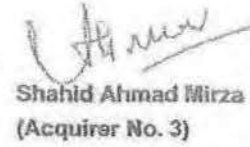 Shahid Ahmad Mirza
(Acquirer No. 3)